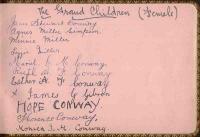 The Grand Children (Female)
Jean Stewart Conway
Agnes Millie Simpson
Minnie Miller
Lizzie Miller
M. Conway
Ruth Conway
Esther A. F Conway
James G Gibson
HOPE CONWAY.
Florence Conway.
Monica J. M. Conway